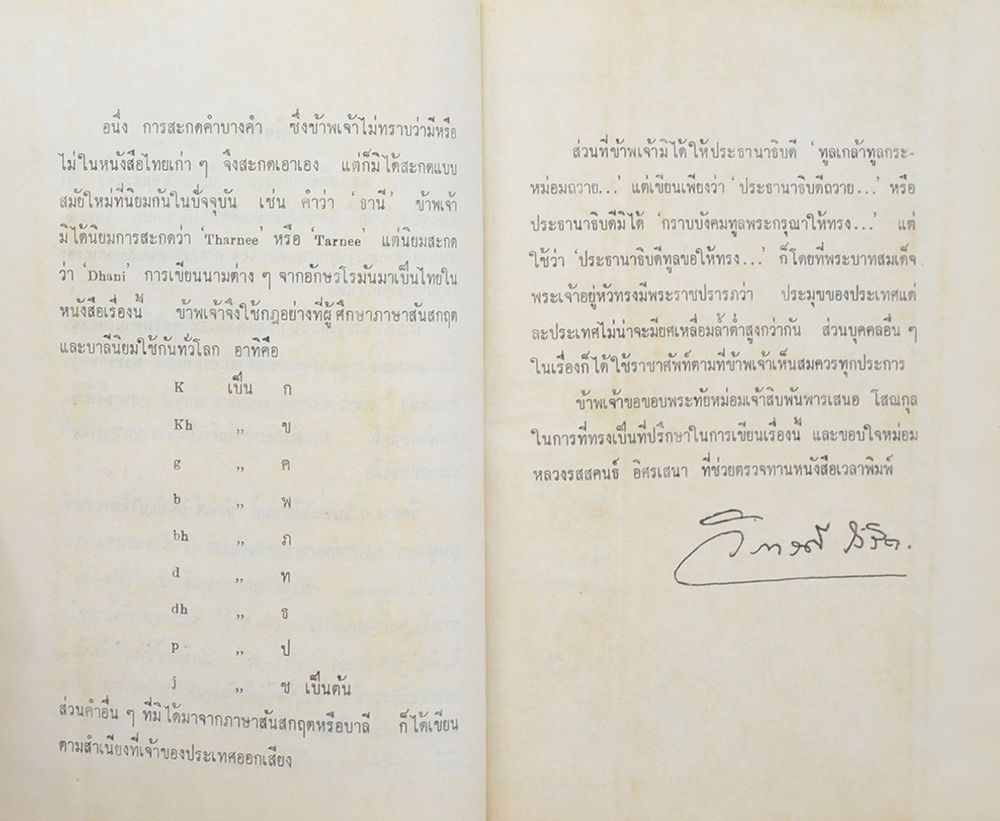 อนึ่ง การสะกดคำบางคำ ซึ่งข้าพเจ้าไม่ทราบว่ามีหรือ
ไม่ในหนังสือไทยเก่า ๆ จึงสะกดเอาเอง แต่ก็มิได้สะกดแบบ
สมัยใหม่ที่นิยมกันในปัจจุบัน เช่น คำว่า ‘ธานี’ ข้าพเจ้า
มิได้นิยมการสะกดว่า ‘Tharnee’ หรือ ‘Tarnee’ แต่นิยมสะกด
ว่า ‘Dhani’ การเขียนนามต่าง ๆ จากอักษรโรมันมาเป็นไทยใน
หนังสือเรื่องนี้ ข้าพเจ้าจึงใช้กฎอย่างที่ผู้ศึกษาภาษาสันสกฤต
และบาลีนิยมใช้กันทั่วโลก อาทิคือ
K เป็น ก
Kh ,, ข
g ,, ค
b ,, พ
bh ,, ภ
d ,, ท
dh ,, ธ
p ,, ป
j ,, ช เป็นต้น
ส่วนคำอื่น ๆ ที่มิได้มาจากภาษาสันสกฤตหรือบาลี ก็ได้เขียน
ตามสำเนียงที่เจ้าของประเทศออกเสียง
ส่วนที่ข้าพเจ้ามิได้ให้ประธานาธิบดี ‘ทูลเกล้าทูลกระ-
หม่อมถวาย...’ แต่เขียนเพียงว่า ‘ประธานาธิบดีถวาย...’ หรือ
ประธานาธิบดีมิได้ ‘กราบบังคมทูลพระกรุณาให้ทรง...’ แต่
ใช้ว่า ‘ประธานาธิบดีทูลขอให้ทรง...’ ก็โดยที่พระบาทสมเด็จ
พระเจ้าอยู่หัวทรงมีพระราชปรารภว่า ประมุขของประเทศแต่
ละประเทศไม่น่าจะมียศเหลื่อมล้ำต่ำสูงกว่ากัน ส่วนบุคคลอื่น ๆ
ในเรื่องก็ได้ใช้ราชาศัพท์ตามที่ข้าพเจ้าเห็นสมควรทุกประการ
ข้าพเจ้าขอขอบพระทัยหม่อมเจ้าสิบพันพารเสนอ โสณกุล
ในการที่ทรงเป็นที่ปรึกษาในการเขียนเรื่องนี้ และขอบใจหม่อม
หลวงรสสคนธ์ อิศรเสนา ที่ช่วยตรวจทานหนังสือเวลาพิมพ์
วิภาวดี รังสิต.